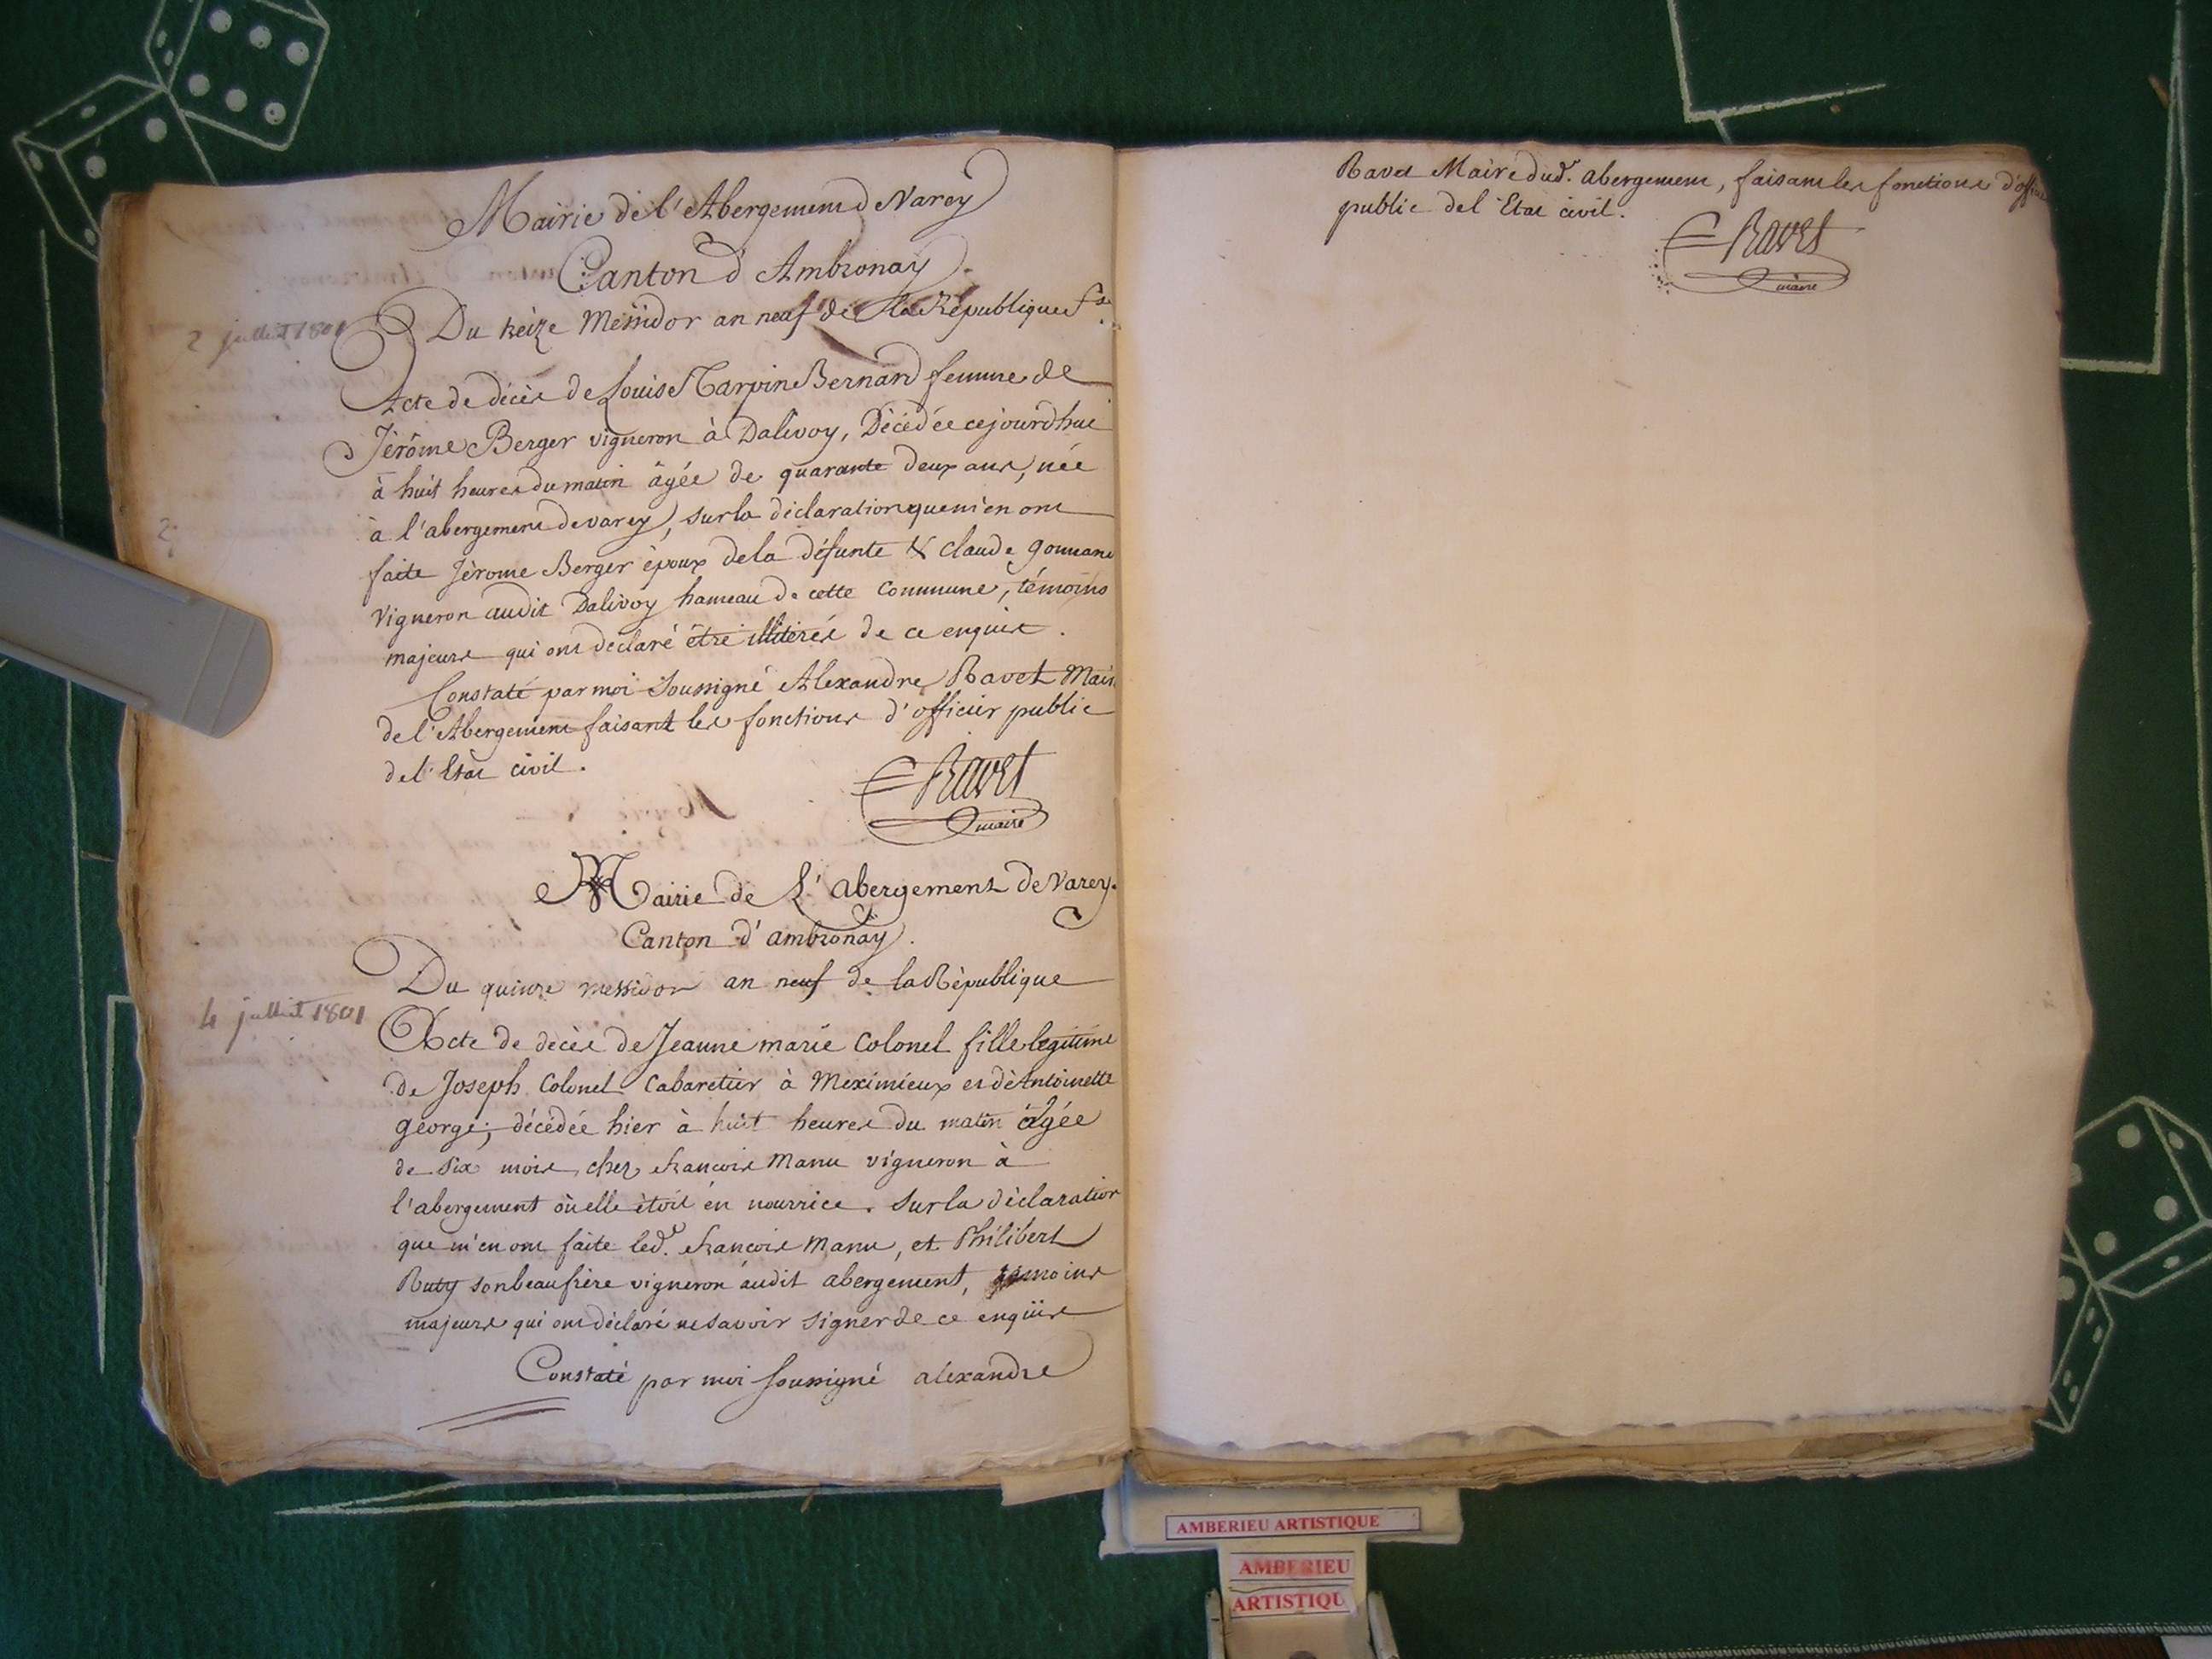 Mairie de l'Abergement de Varey
Canton d'Ambronay.
2 juillet 1801
Du treize Messidor an neuf de la République fse.
Acte de décès de Louise Tarpin Bernard femme de
Jérôme Berger vigneron à Dalivoy, Décédée cejourdhui
à huit heures du matin âgée de quarante deux ans, née
à l'abergement de varey, sur la déclaration que m'en ont
faite Jérome Berger époux de la défunte & claude
Vigneron audit Dalivoy hameau de cette Commune, témoins
majeurs qui ont déclaré être illitérés de ce enquis.
Constaté par moi Soussigné Alexandre Ravet Maire
de l'Abergement faisant les fonctions d'officier public
de l'Etat civil.
Ravet
maire
Mairie de L'abergement de Varey.
Canton d'ambronay.
4 juillet 1801
Du quinze messidor an neuf de la République
Acte de décès de Jeanne marie Colonel fille légitime
de Joseph Colonel Cabaretier à Meximieux et de Antoinette
george, décédée hier à huit heures du matin âgée
de six mois, chez francois Manu vigneron à
l'abergement où elle étoit en nourrice. Sur la déclaration
que m'en ont faite led. francois Manu, et Philibert
Ruty son beau frère vigneron audit abergement, témoins
majeurs qui ont déclaré ne savoir signer de ce enquis
Constaté par moi soussigné aléxandre
Ravet Maire dud. abergement, faisant les fonctions d'officier
public de l'Etat civil.
Ravet
maire
AMBERIEU ARTISTIQUE
AMBERIEU
ARTISTIQU